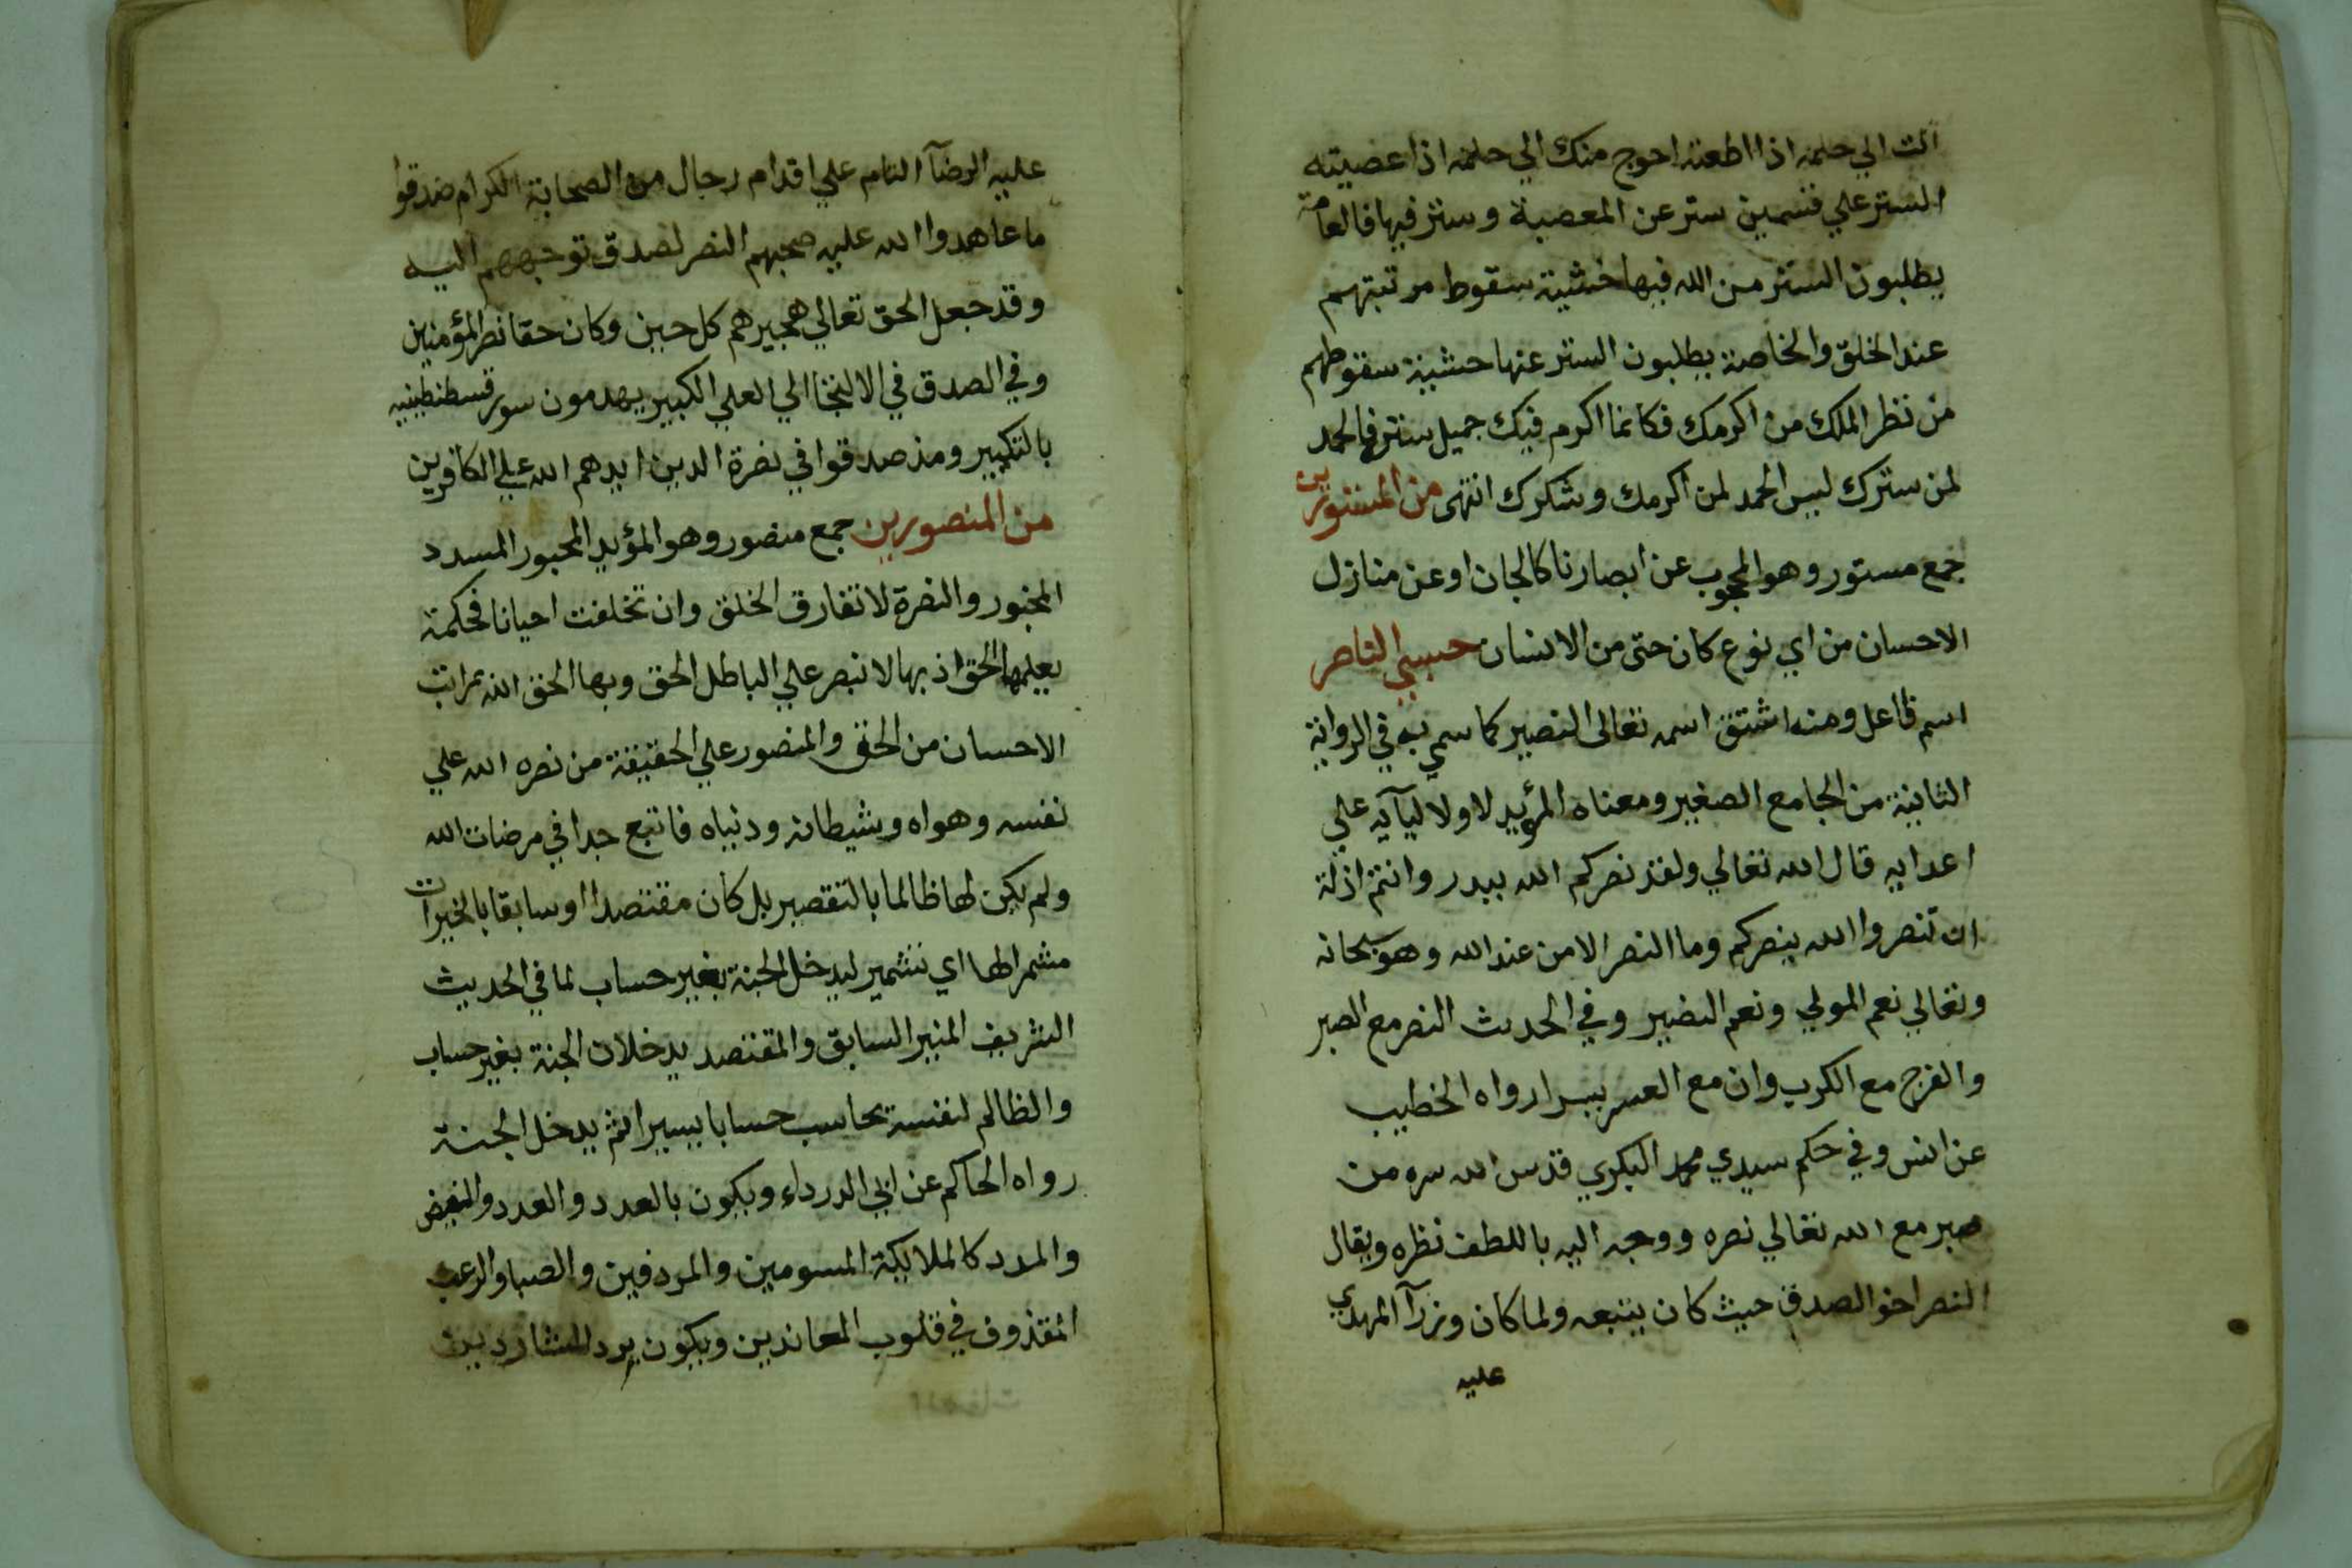 انت الي حلمه اذا اطعته احوج منك الي حلمه اذا عصيته
الستر علي قسمين ستر عن المعصية وستر فيها فالعامة
يطلبون الستر من الله فيها خشية سقوط مرتبتهم
عند الخلق والخاصة يطلبون الستر عنها خشية سقوطهم
من نظر الملك من اكرمك فكانما اكرم فيك جميل ستره فالحمد
لمن سترك ليس الحمد لمن اكرمك وشكرك انتهى من المستورين
جمع مستور وهو المحجوب عن ابصارنا كالجان او عن منازل
الاحسان من اي نوع كان حتى من الانسان حسبي الناصر
اسم فاعل ومنه اشتق اسمه تعالى النصير كما سمي به في الرواية
الثانية من الجامع الصغير ومعناه المؤيد لاوليآيه علي
اعدايه قال الله تعالي ولقد نصركم الله ببدر وانتم اذلة
ان تنصروا الله ينصركم وما النصر الا من عند الله وهو سبحانه
وتعالي نعم المولي ونعم النصير وفي الحديث النصر مع الصبر
والفرج مع الكرب وان مع العسر يسرا رواه الخطيب
عن انس وفي حكم سيدي محمد البكري قدس الله سره من
صبر مع الله تعالي نصره ووجه اليه باللطف نظره ويقال
النصر اخو الصدق حيث كان يتبعه ولما كان وزرآ المهدي
عليه
عليه الرضآ التام علي اقدام رجال من الصحابة الكرام صدقوا
ما عاهدوا الله عليه صحبهم النصر لصدق توجههم اليه
وقد جعل الحق تعالي هجيرهم كل حين وكان حقا نصر المؤمنين
وفي الصدق في الالتجا الي العلي الكبير يهدمون سور قسطنطينيه
بالتكبير ومذ صدقوا في نصرة الدين ايدهم الله علي الكافرين
من المنصورين جمع منصور وهو المؤيد المحبور المسدد
المجبور والنصرة لا تفارق الخلق وان تخلفت احيانا فحكمة
يعلمها الحق اذ بها لا نبصر علي الباطل الحق وبها الحق الله مراتب
الاحسان من الحق والمنصور علي الحقيقة من نصره الله علي
نفسه وهواه وشيطانه ودنياه فاتبع جدا في مرضات الله
ولم يكن لها ظالما بالتقصير بل كان مقتصدا او سابقا بالخيرات
مشمرا لها اي تشمير ليدخل الجنة بغير حساب لما في الحديث
الشريف المنير السابق والمقتصد يدخلان الجنة بغير حساب
والظالم لنفسه يحاسب حسابا يسيرا ثم يدخل الجنة
رواه الحاكم عن ابي الدرداء ويكون بالعدد والعدد والفيض
والمدد كالملايكة المسومين والمردفين والصبا والرعب
المقذوف في قلوب المعاندين ويكون برد الشاردين